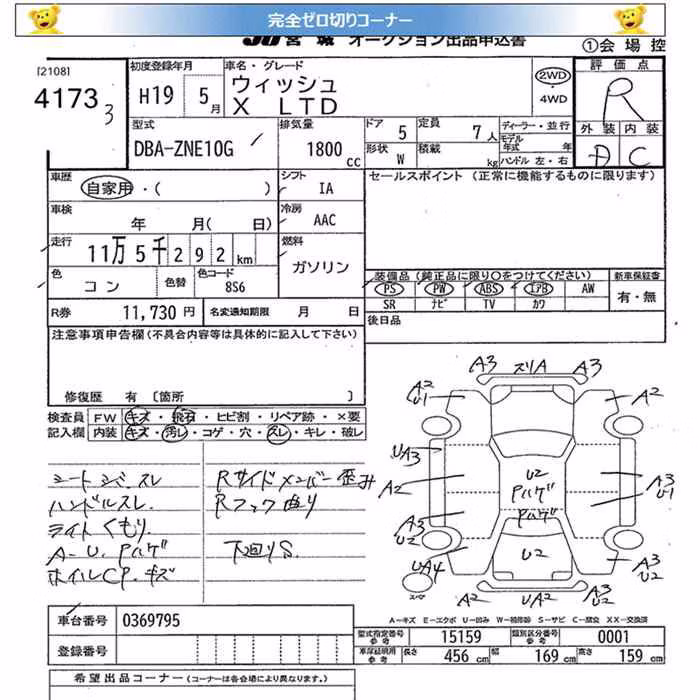 完全ゼロ切りコーナー
JU宮城 オークション出品申込書
①会場控
[2108]
4173 3
初度登録年月
H19 5月
車名・グレード
ウィッシュ
X LTD
2WD
・4WD
評価点
R
外装 内装
D C
型式
DBA-ZNE10G
排気量
1800cc
ドア 5
定員 7人
形状 W
積載 kg
ディーラー・並行
モデル年式 年
ハンドル 左・右
車歴
自家用・( )
シフト
IA
車検
年 月( 日)
冷房
AAC
走行
11万5千292km
燃料
ガソリン
色
コン
色替
色コード
8S6
R券 11,730円
名変通知期限 月 日
セールスポイント(正常に機能するものに限ります)
装備品(純正品に限り○をつけてください)
PS PW ABS エアB AW
SR ナビ TV カワ
新車保証書
有・無
後日品
注意事項申告欄(不具合内容等は具体的に記入して下さい)
修復歴 有〔箇所 〕
検査員 FW キズ・飛石・ヒビ割・リペア跡・×要
記入欄 内装 キズ・汚レ・コゲ・穴・スレ・キレ・破レ
シートシミ、スレ
ハンドルスレ
ライトくもり
A-U Pハゲ
ホイルCP.キズ
Rサイドメンバー歪み
Rフック曲り
下回りS
A3 スリA A3
A2 U1
A2
UA3
A2
A3 U1
U2
Pハゲ
Pハゲ
A3 U2
A3
U2
UA4
A3 U2
スペア
A2 UA2 A2
A-キズ E-エクボ U-凹み W-補修跡 S-サビ C-腐食 XX-交換済
車台番号 0369795
登録番号
型式指定番号 参考 15159
類別区分番号 参考 0001
車体証明用 参考 長さ 456cm 幅 169cm 高さ 159cm
希望出品コーナー(コーナーは各会場により異なります。)